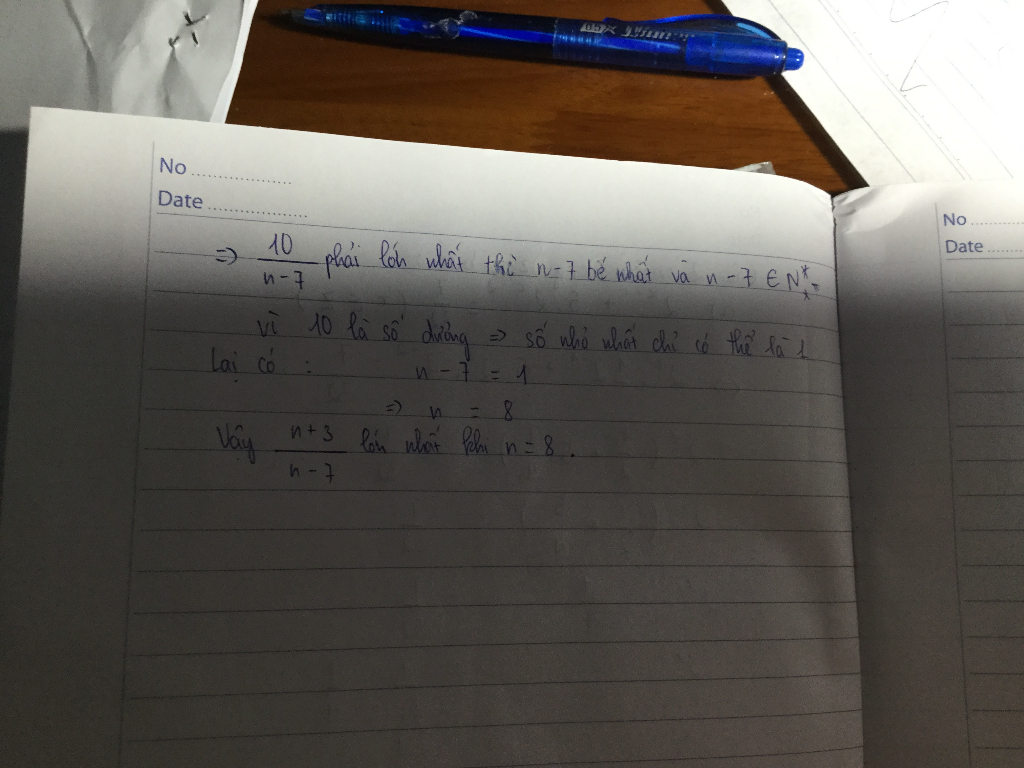 No ....................
Date ....................
⇒ 10/(n-7) phải lớn nhất thì n-7 bé nhất và n-7 ∈ N*
vì 10 là số dương ⇒ số nhỏ nhất chỉ có thể là 1
Lại có : n - 7 = 1
⇒ n = 8
Vậy (n+3)/(n-7) lớn nhất khi n = 8 .
No ..........
Date ..........